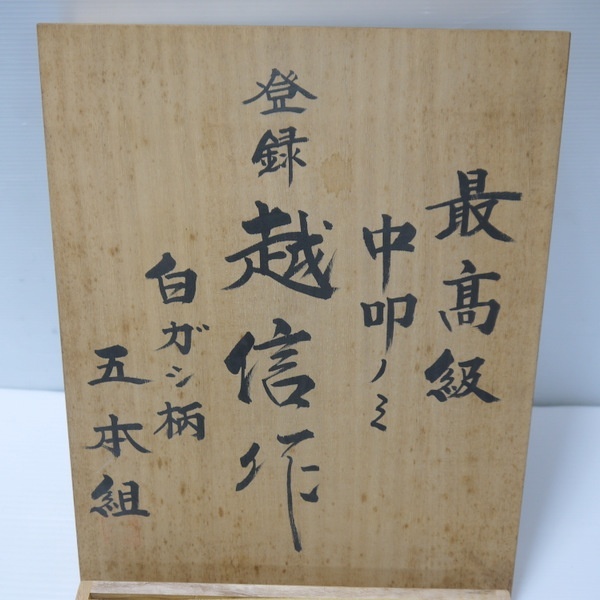 最高級
中叩ノミ
登録
越信作
白ガシ柄
五本組